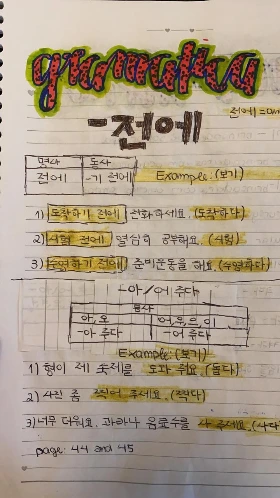 grammatika
전에 =
-전에
명사 동사
전에 -기 전에 Example: (보기)
1) 도착하기 전에 전화하세요. (도착하다)
2) 시험 전에 열심히 공부해요. (시험)
3) 수영하기 전에 준비운동을 해요. (수영하다)
-아/어 주다
동사
아, 오 어, 우, 으, 이
-아 주다 -어 주다
Example: (보기)
1) 형이 제 숙제를 도와 줘요. (돕다)
2) 사진 좀 찍어 주세요. (찍다)
3) 너무 더워요. 음료수를 사 주세요. (사다
page: 44 and 45